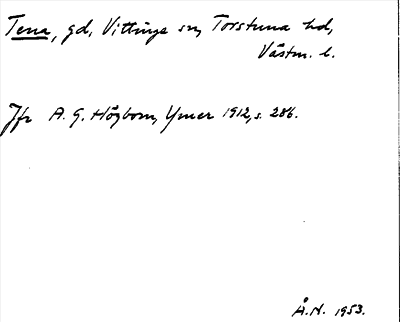 Tena, gd, Vittinge sn, Torstuna hd,
Västm. l.
Jfr A. G. Högbom, Ymer 1912, s. 286.
Å.N. 1953.